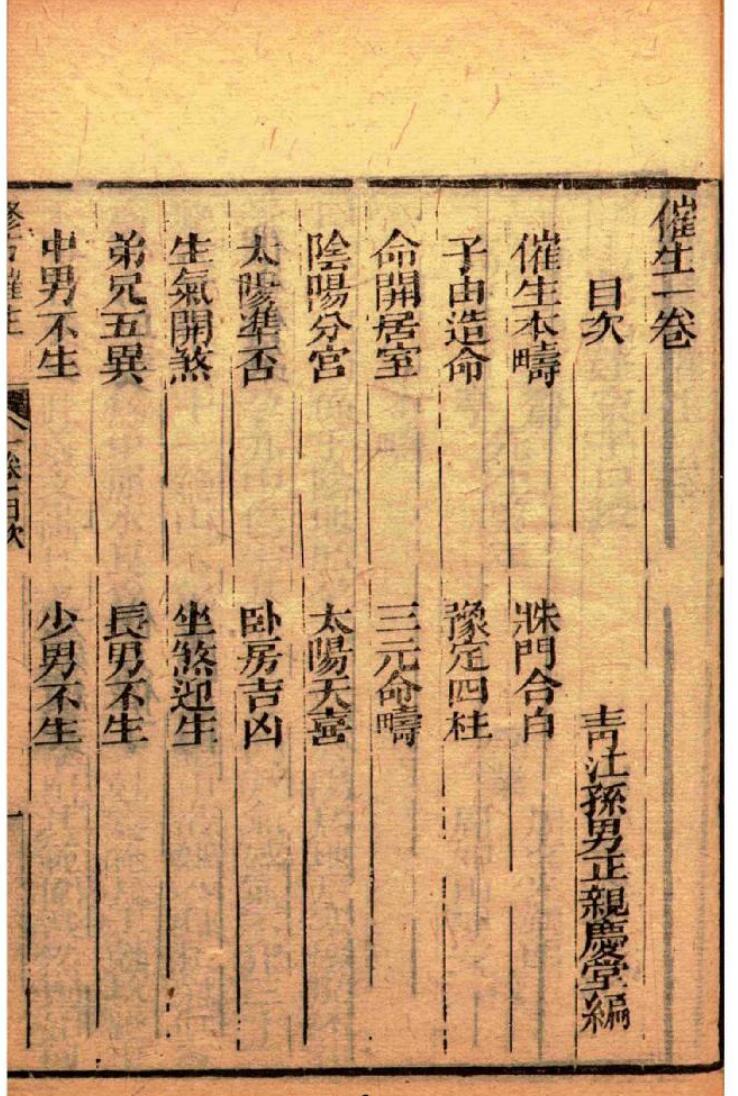 催生一卷
目次　青江孫男正親慶堂編
催生本疇　牀門合白
子由造命　豫定四柱
命開居室　三元命疇
陰陽分宮　太陽天喜
太陽準否　卧房吉凶
生氣開煞　坐煞迎生
弟兄五異　長男不生
中男不生　少男不生
催生　一卷目次　一